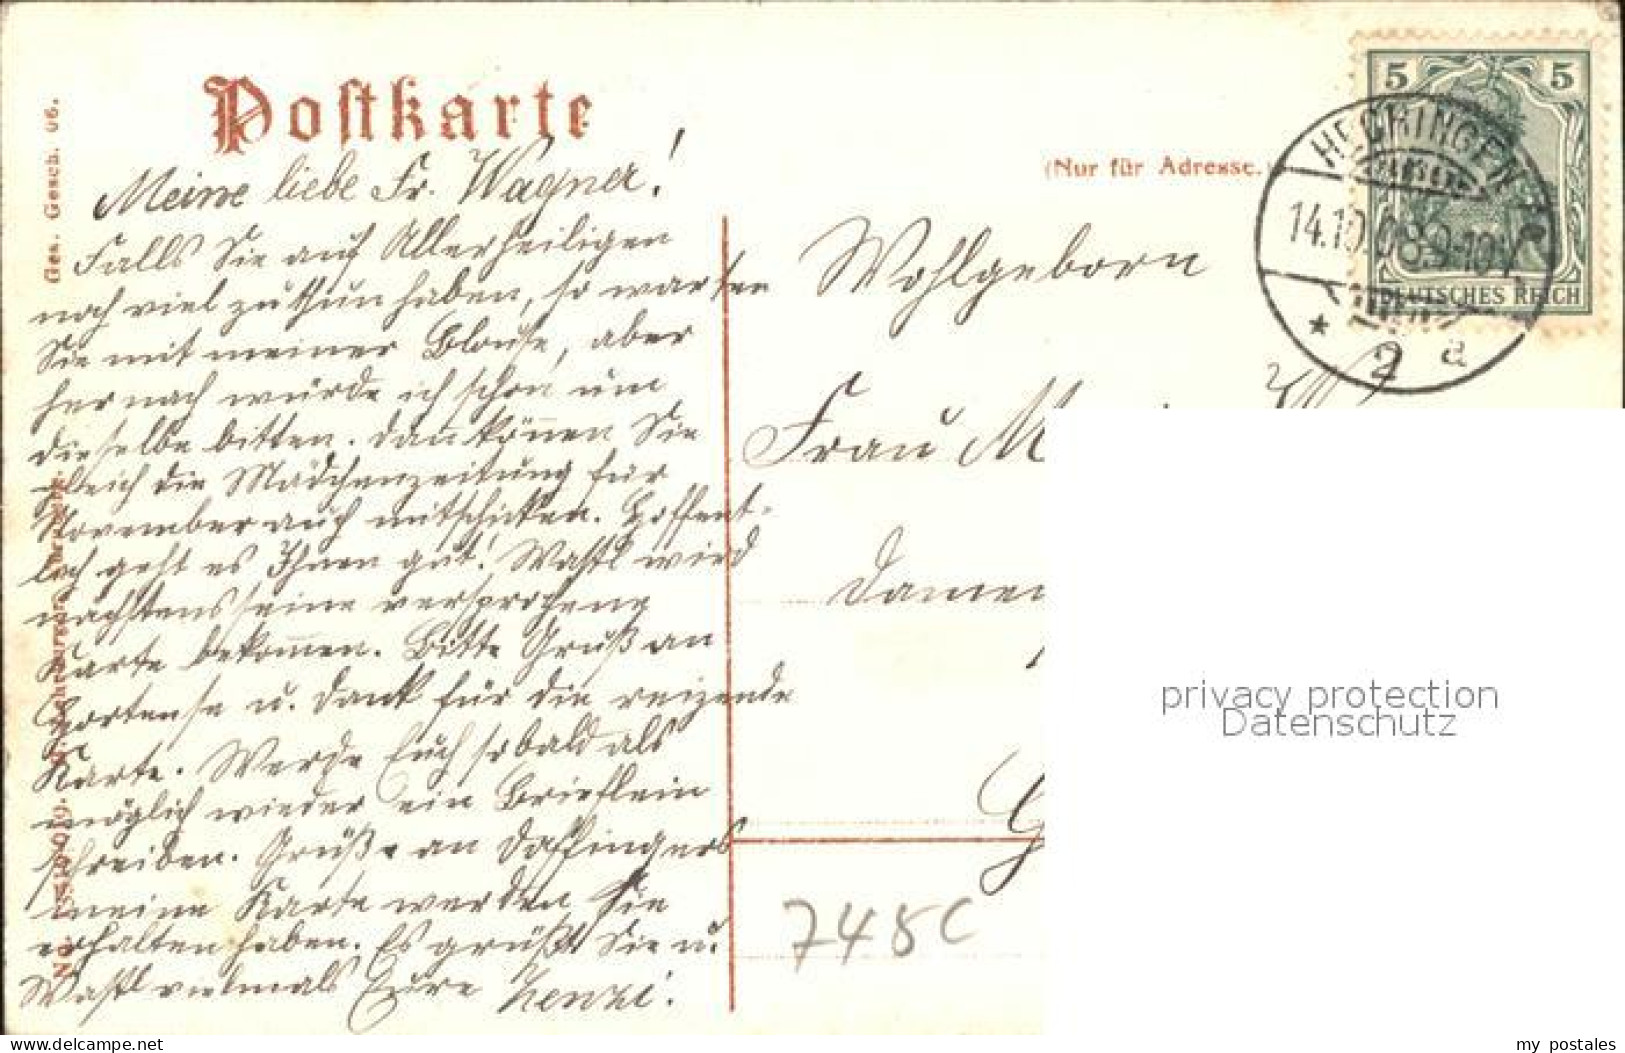 Postkarte
(Nur für Adresse.)
Ges. Gesch. 06.
Meine liebe Fr. Wagner!
Falls Sie auf Allerheiligen
noch viel zu thun haben, so warten
Sie mit meiner Blouse, aber
hernach würde ich schon um
dieselbe bitten. Dann können Sie
gleich die Mädchenzeitung für
November auch mitschicken. Hoffent-
lich geht es Ihnen gut! Wastl wird
nächstens seine versprochene
Karte bekommen. Bitte Gruß an
Hortense u. Dank für die reizende
Karte. Werde Euch sobald als
möglich wieder ein Brieflein
schreiben. Grüße an Daffingers
meine Karte werden Sie
erhalten haben. Es grüßt Sie u.
Wastl vielmals Eure Zenzi.
HECHINGEN
14.10.08.9-10V
* 2 a
5 5
DEUTSCHES REICH
Wohlgeborn
Frau
Damen
privacy protection
Datenschutz
748C
delcampe.net
my_postales